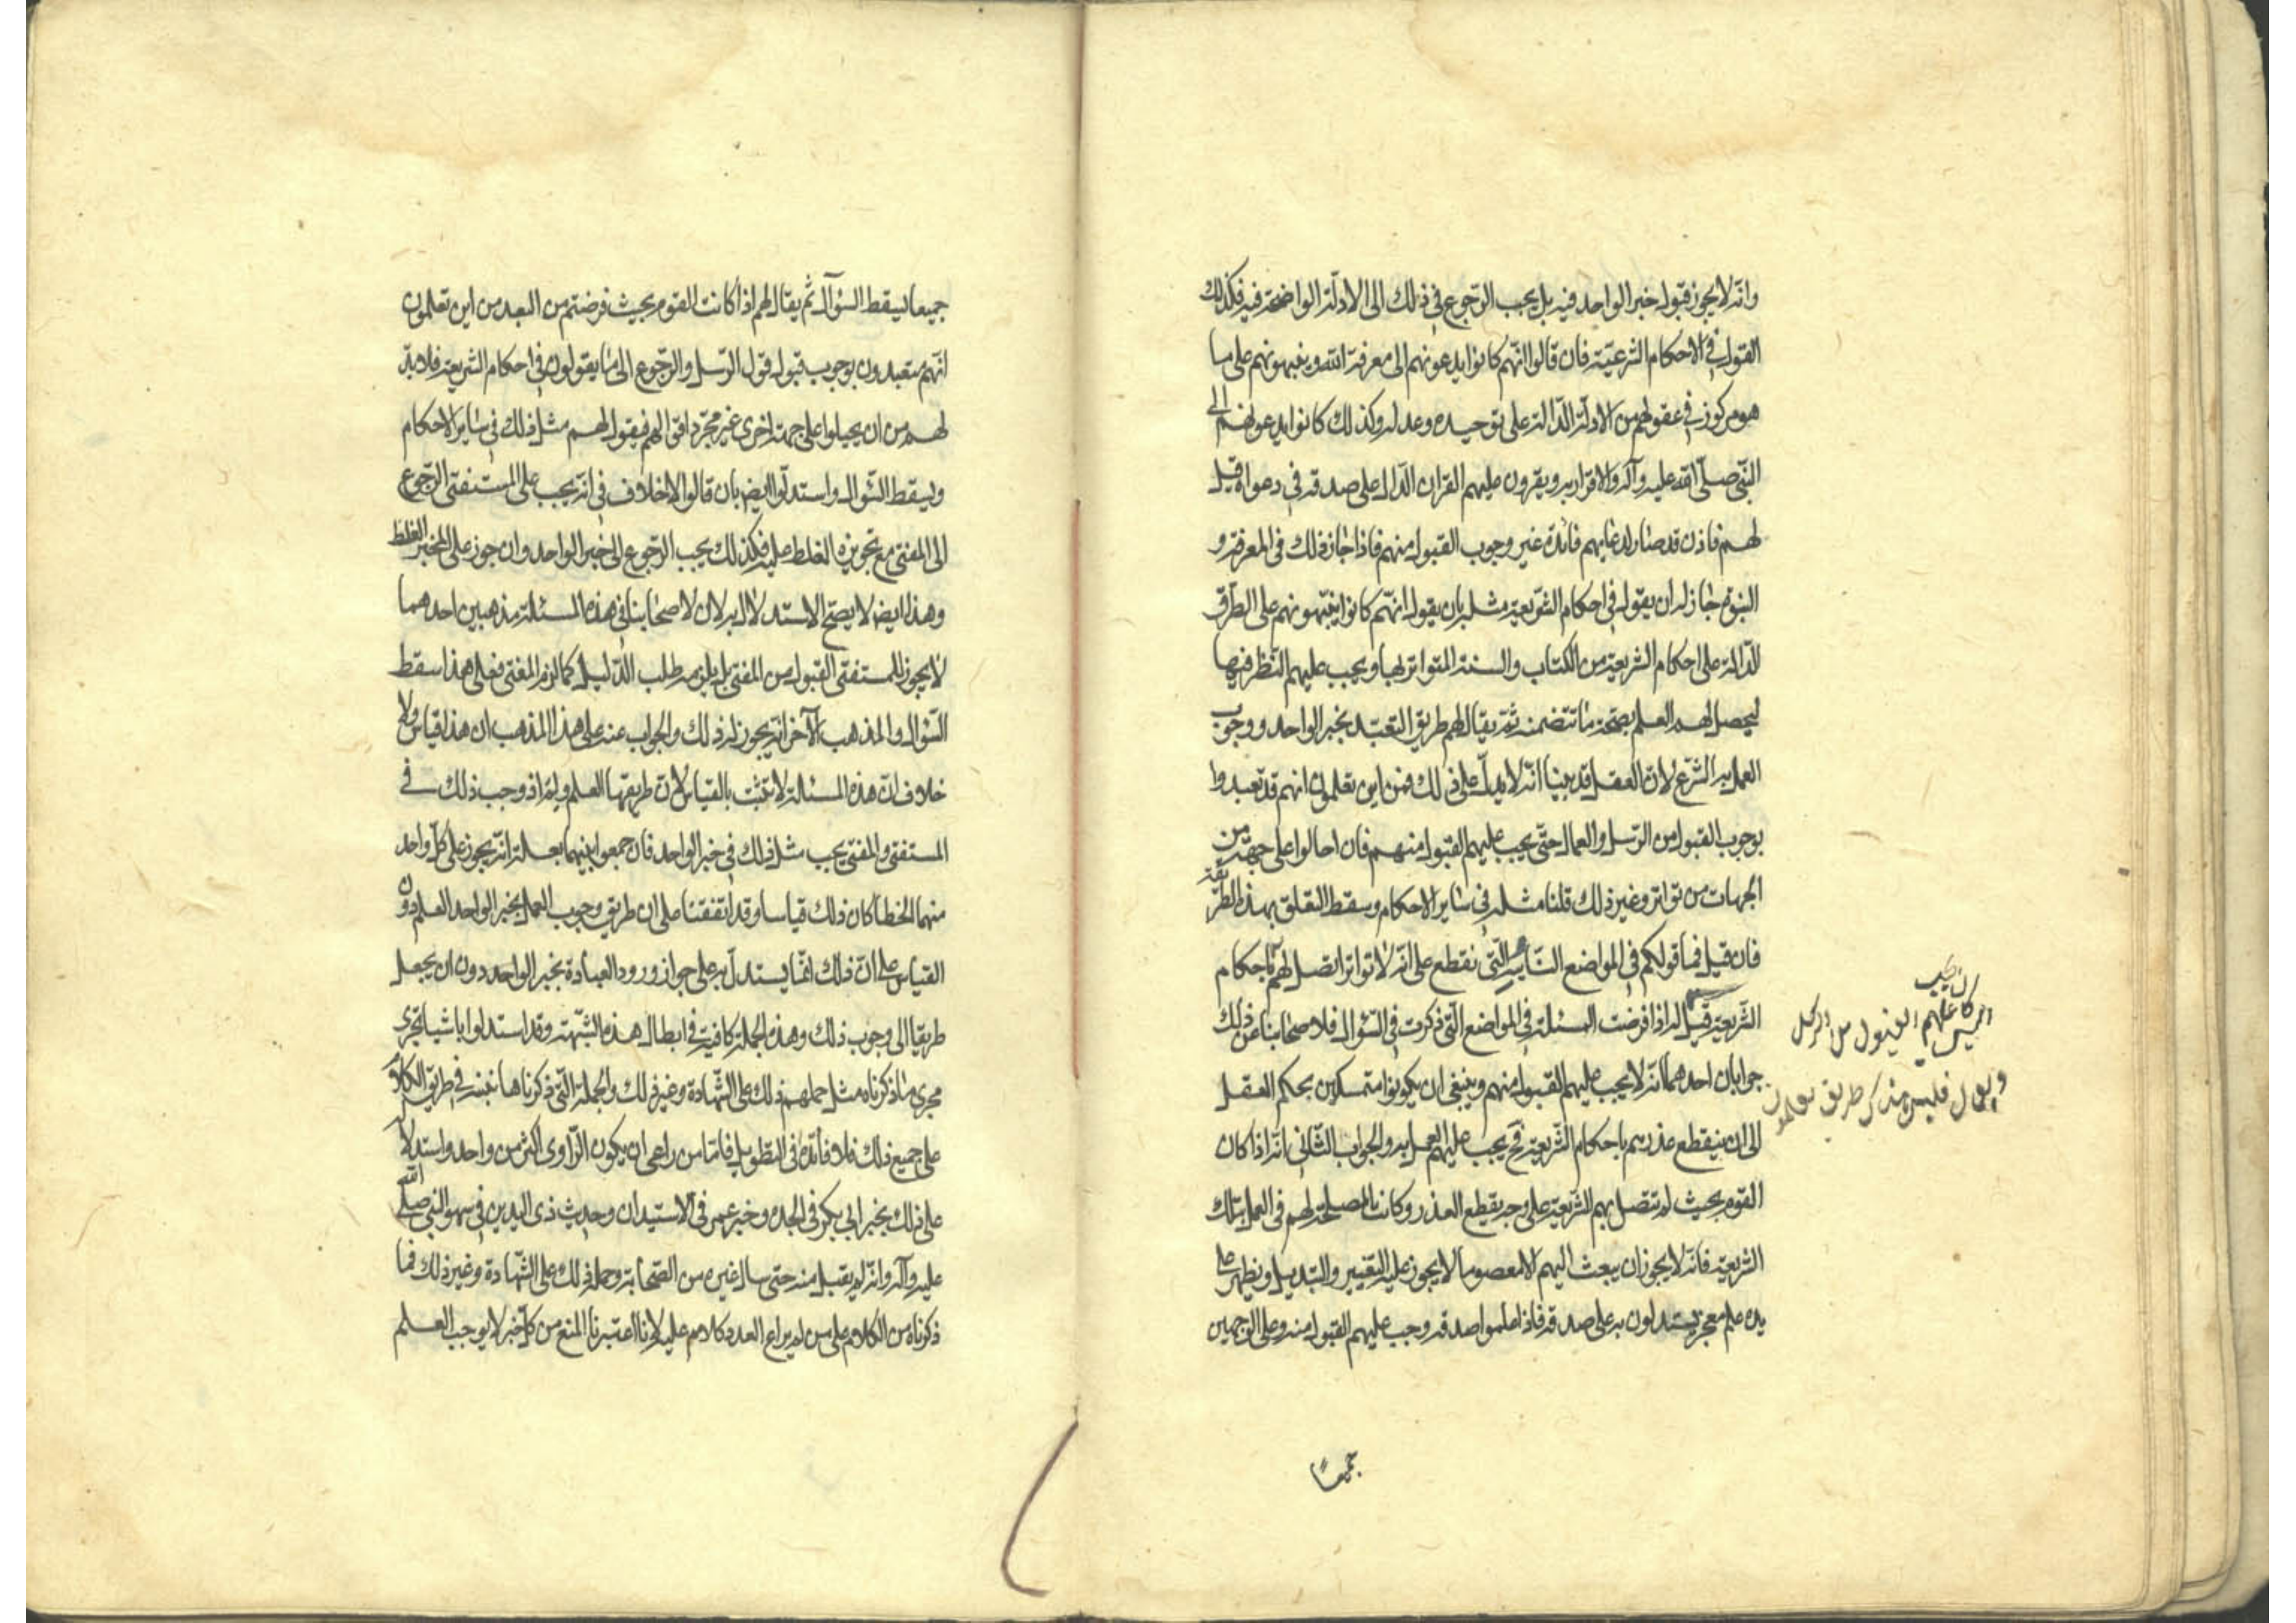 وانّه لا يجوز قبول خبر الواحد فيه بل يجب الرّجوع في ذلك الى الادلّة الواضحة فيه فكذلك
القول في الاحكام الشرعيّة فان قالوا انّهم كانوا يدعونهم الى معرفة الله وينبهونهم على ما
هو مركوز في عقولهم من الادلّة الدّالة على توحيده وعدله وكذلك كانوا يدعونهم الى
النّبيّ صلّى الله عليه وآله والاقرار به ويقرون عليهم القران الدّال على صدقه في دعواه قيل
لهم فاذن قد صار لدعايهم فائدة غير وجوب القبول منهم فاذا جاز ذلك في المعرفة و
النبوّة جاز له ان يقول في احكام الشّريعة مثله بان يقول انّهم كانوا ينبّهونهم على الطّرق
الدّالة على احكام الشريعة من الكتاب والسنة المتواتر بها ويجب عليهم النّظر فيها
ليحصل لهم العلم بصحّة ما تتضمنه ثمّ يقال لهم طريق التعبّد بخبر الواحد ووجوب
العمل به الشّرع لانّ العقل قد بينا انّه لا يدلّ على ذلك فمن اين تعلمون انهم قد تعبدوا
بوجوب القبول من الرّسل والعمال حتّى يجب عليهم القبول منهم فان احالوا على جهة من
الجهات من تواتر وغير ذلك قلنا مثله في ساير الاحكام وسقط التعلق بهذه الطريقة
فان قيل فما قولكم في المواضع النّايية الّتي نقطع على انّه لا تواتر اتصل لهم باحكام
الشّريعة قيل له اذا فرضت المسئلة في المواضع الّتي ذكرت في السّؤال فلاصحابنا عن ذلك
جوابان احدهما انّه لا يجب عليهم القبول منهم وينبغي ان يكونوا متمسكين بحكم العقل
الى ان ينقطع عذرهم باحكام الشّريعة فح يجب عليهم العمل به والجواب الثّاني انّه اذا كان
القوم بحيث لم تتصل بهم الشّريعة على وجه يقطع العذر وكانت المصلحة لهم في العمل بتلك
الشريعة فانّه لا يجوز ان يبعث اليهم الا معصوما لا يجوز عليه التغيير والتبديل ويظهر على
يده علم معجز يستدلون به على صدقه فاذا علموا صدقه وجب عليهم القبول منه وعلى الوجهين
ان يجب
عليهم القبول من الرسل
طريق يعلمون
جميعًا
جميعا يسقط السّؤال ثمّ يقال لهم اذا كانت القوم بحيث فرضتم من البعد من اين تعلمون
انّهم متعبدون بوجوب قبول قول الرّسل والرّجوع الى ما يقولون في احكام الشريعة فلا بدّ
لهم من ان يحيلوا على جهة اخرى غير مجرّد اقوالهم فيقول لهم مثل ذلك في ساير الاحكام
ويسقط السّؤال واستدلّوا ايض بان قالوا لا خلاف في انّه يجب على المستفتي الرّجوع
الى المفتي مع تجويزه الغلط عليه فكذلك يجب الرّجوع الى خبر الواحد وان جوز على المخبر الغلط
وهذا ايض لا يصحّ الاستدلال به لان لاصحابنا في هذه المسئلة مذهبين احدهما
لا يجوز للمستفتي القبول من المفتي بل يلزمه طلب الدّليل كما لزم المفتي فعلى هذا سقط
السّؤال والمذهب الآخر انّه يجوز له ذلك والجواب عنه على هذا المذهب ان هذا قياس ولا
خلاف انّ هذه المسئلة لا تثبت بالقياس لانّ طريقها العلم ولم اذ وجب ذلك في
المستفتي والمفتي يجب مثل ذلك في خبر الواحد فان جمعوا بينهما بعلة انّه يجوز على كلّ واحد
منهما الخطأ كان ذلك قياسا وقد اتفقنا على ان طريق وجوب العمل بخبر الواحد العلم دون
القياس على انّ ذلك انّما يستدلّ به على جواز ورود العبادة بخبر الواحد دون ان يجعل
طريقا الى وجوب ذلك وهذه الجملة كافية في ابطال هذه الشّبهة وقد استدلوا باشياء تجري
مجرى ما ذكرناه مثل حملهم ذلك على الشّهادة وغير ذلك والجملة الّتي ذكرناها تنبه في طريق الكلام
على جميع ذلك فلا فائدة في التطويل فامّا من راعى ان يكون الرّاوي اكثر من واحد واستدلاله
على ذلك بخبر ابي بكر في الجدة وخبر عمر في الاستيذان وحديث ذي اليدين في سهو النبي صلّى الله
عليه وآله وانّه لم يقبل منه حتى سال غيره من الصّحابة وحمله ذلك على الشّهادة وغير ذلك فما
ذكرناه من الكلام على من لم يراع العدد كلام عليه لانا اعتبرنا المنع من كلّ خبر لا يوجب العلم